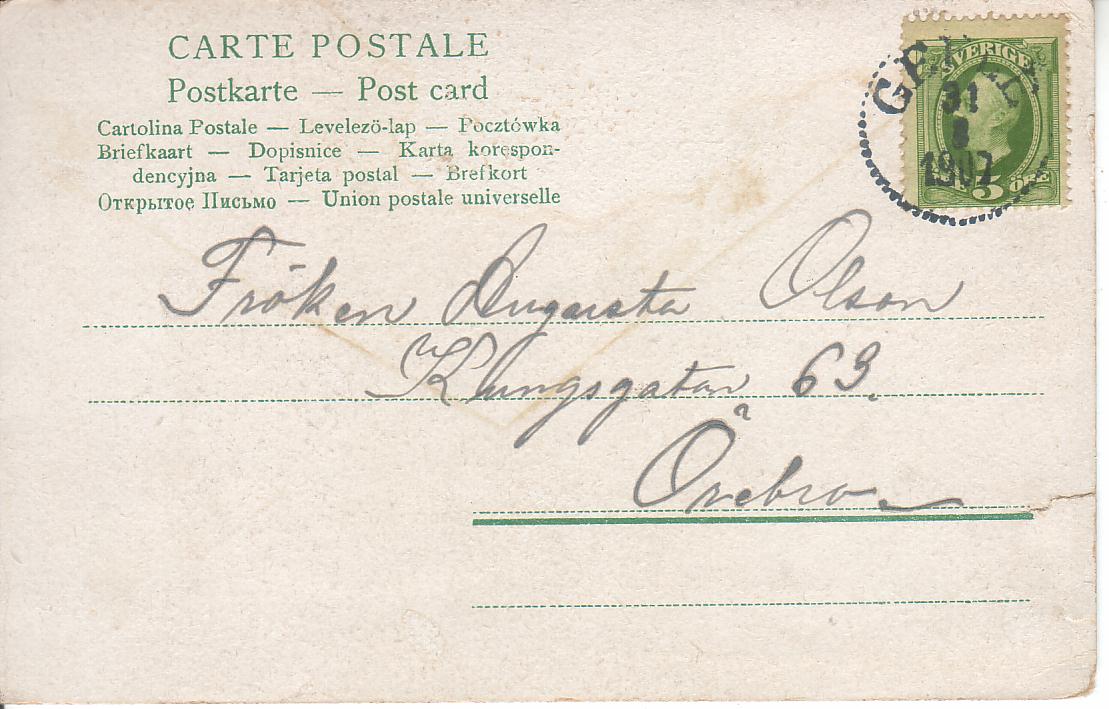 CARTE POSTALE
Postkarte — Post card
Cartolina Postale — Levelező-lap — Pocztówka
Briefkaart — Dopisnice — Karta korespon-
dencyjna — Tarjeta postal — Brefkort
Открытое Письмо — Union postale universelle
SVERIGE
5 ÖRE
GEFLE
31
8
1907
Fröken Augusta Olson
Kungsgatan 63.
Örebro